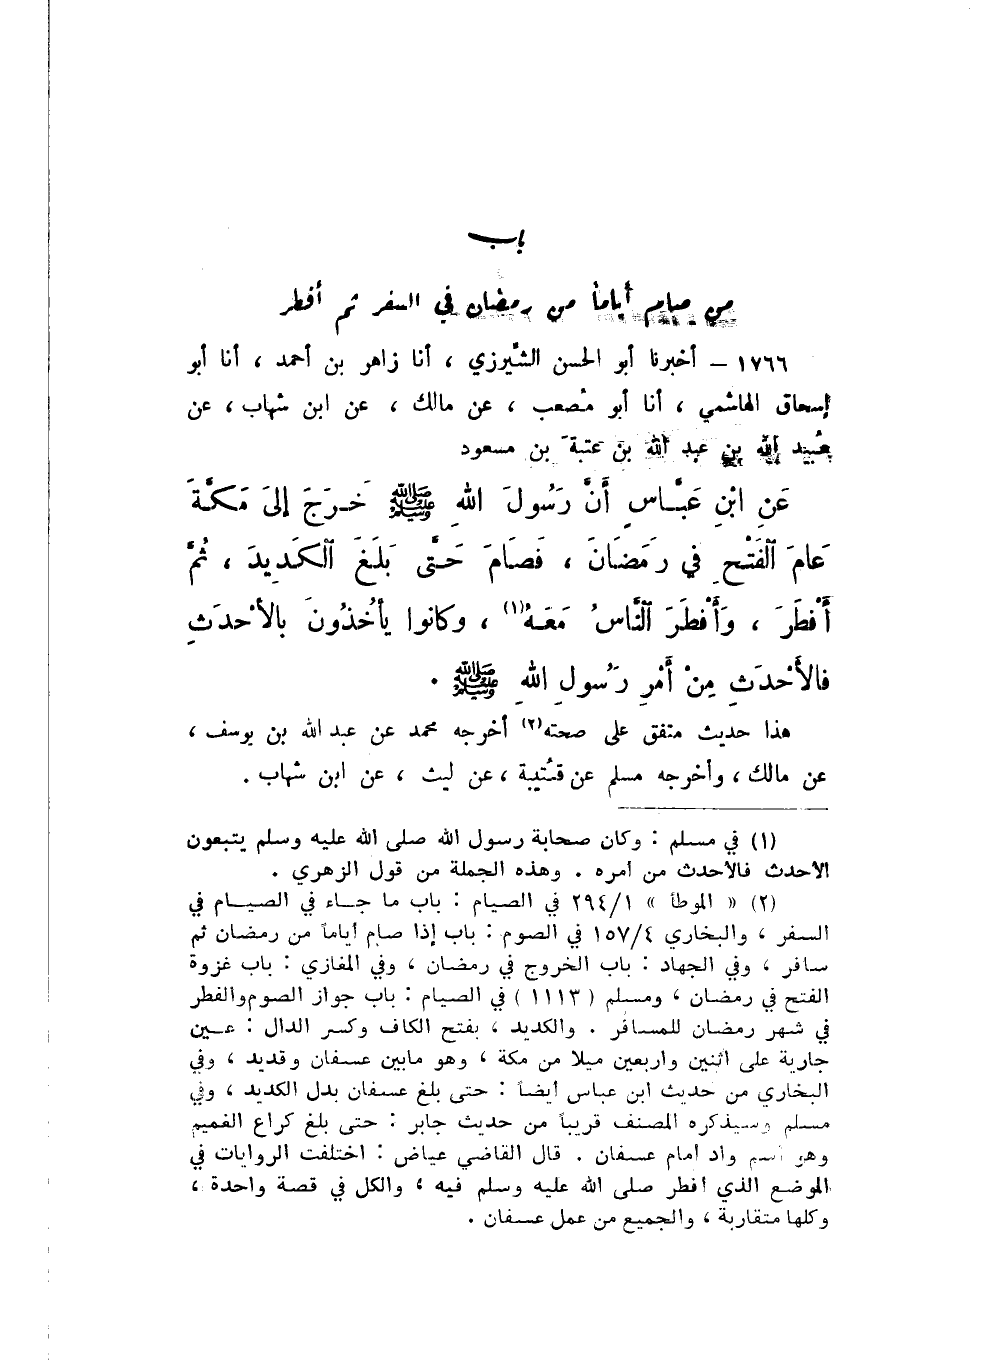 باب
من صام أياماً من رمضان في السفر ثم أفطر
١٧٦٦ – أخبرنا أبو الحسن الشِّيرزي ، أنا زاهر بن أحمد ، أنا أبو
إسحاق الهاشمي ، أنا أبو مُصعب ، عن مالك ، عن ابن شهاب ، عن
عُبيد الله بن عبد الله بن عتبةَ بن مسعود
عَنِ ابْنِ عَبَّاسٍ أَنَّ رَسُولَ اللهِ ﷺ خَرَجَ إِلَىٰ مَكَّةَ
عَامَ الفَتْحِ فِي رَمَضَانَ ، فَصَامَ حَتَّى بَلَغَ الكَدِيدَ ، ثُمَّ
أَفْطَرَ ، وَأَفْطَرَ النَّاسُ مَعَهُ(١) ، وَكانُوا يَأْخُذُونَ بالأَحْدَثِ
فالأَحْدَثِ مِنْ أَمْرِ رَسُولِ اللهِ ﷺ .
هذا حديث متفق على صحته(٢) أخرجه محمد عن عبد الله بن يوسف ،
عن مالك ، وأخرجه مسلم عن قتُيبة ، عن ليث ، عن ابن شهاب .
(١) في مسلم : وكان صحابة رسول الله صلى الله عليه وسلم يتبعون
الأحدث فالأحدث من أمره . وهذه الجملة من قول الزهري .
(٢) « الموطأ » ٢٩٤/١ في الصيام : باب ما جاء في الصيام في
السفر ، والبخاري ١٥٧/٤ في الصوم : باب إذا صام أياماً من رمضان ثم
سافر ، وفي الجهاد : باب الخروج في رمضان ، وفي المغازي : باب غزوة
الفتح في رمضان ، ومسلم ( ١١١٣ ) في الصيام : باب جواز الصوم والفطر
في شهر رمضان للمسافر . والكديد ، بفتح الكاف وكسر الدال : عين
جارية على اثنين واربعين ميلا من مكة ، وهو مابين عسفان وقديد ، وفي
البخاري من حديث ابن عباس أيضاً : حتى بلغ عسفان بدل الكديد ، وفي
مسلم وسيذكره المصنف قريباً من حديث جابر : حتى بلغ كراع الغميم
وهو اسم واد أمام عسفان . قال القاضي عياض : اختلفت الروايات في
الموضع الذي أفطر صلى الله عليه وسلم فيه ، والكل في قصة واحدة ،
وكلها متقاربة ، والجميع من عمل عسفان .